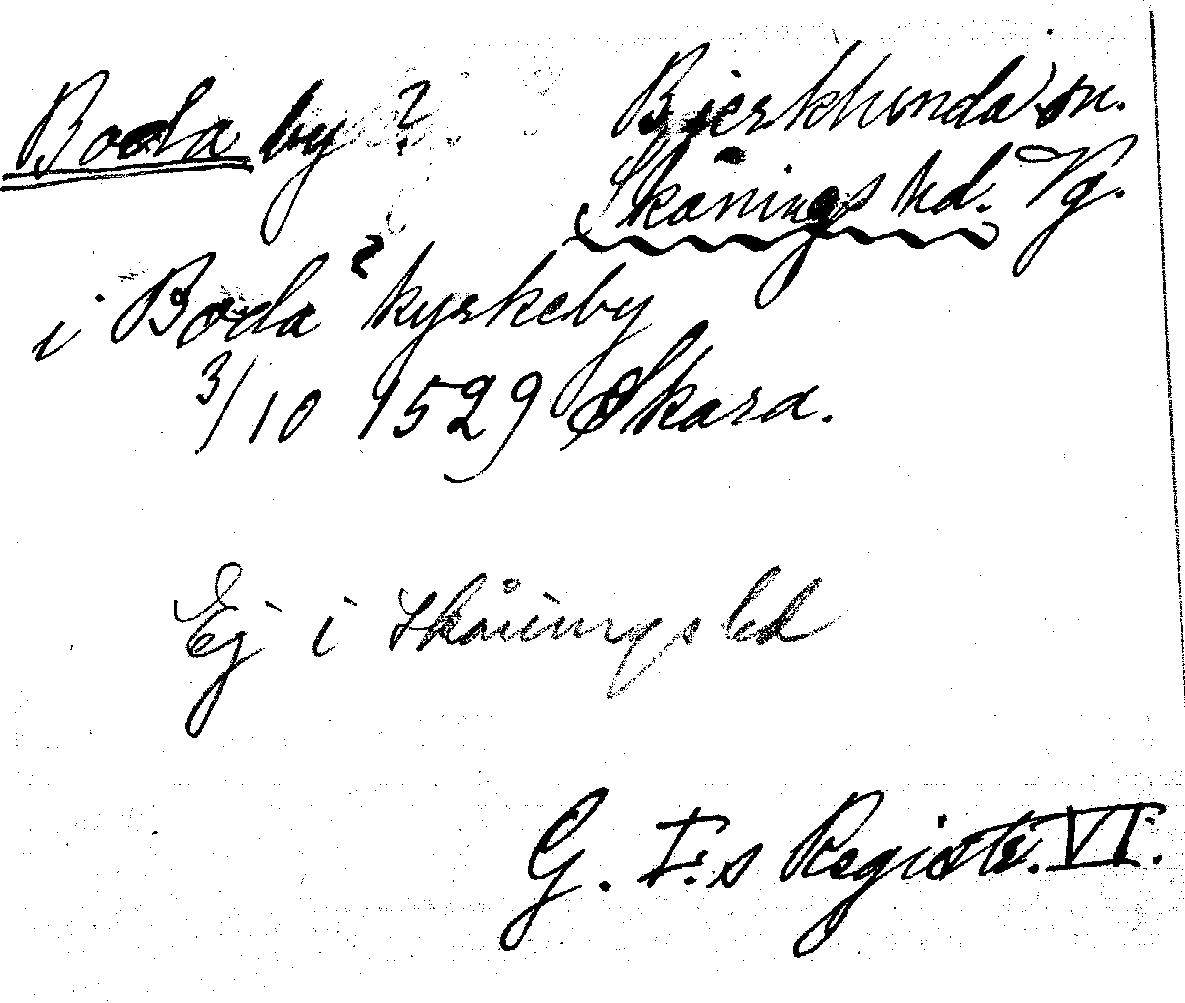 Boda by? Bjerklunda sn.
Skånings hd. Vg.
i Boda? kyrkeby
3/10 1529 Skara.
Ej i Skånings hd
G. I.s Registr. VI.